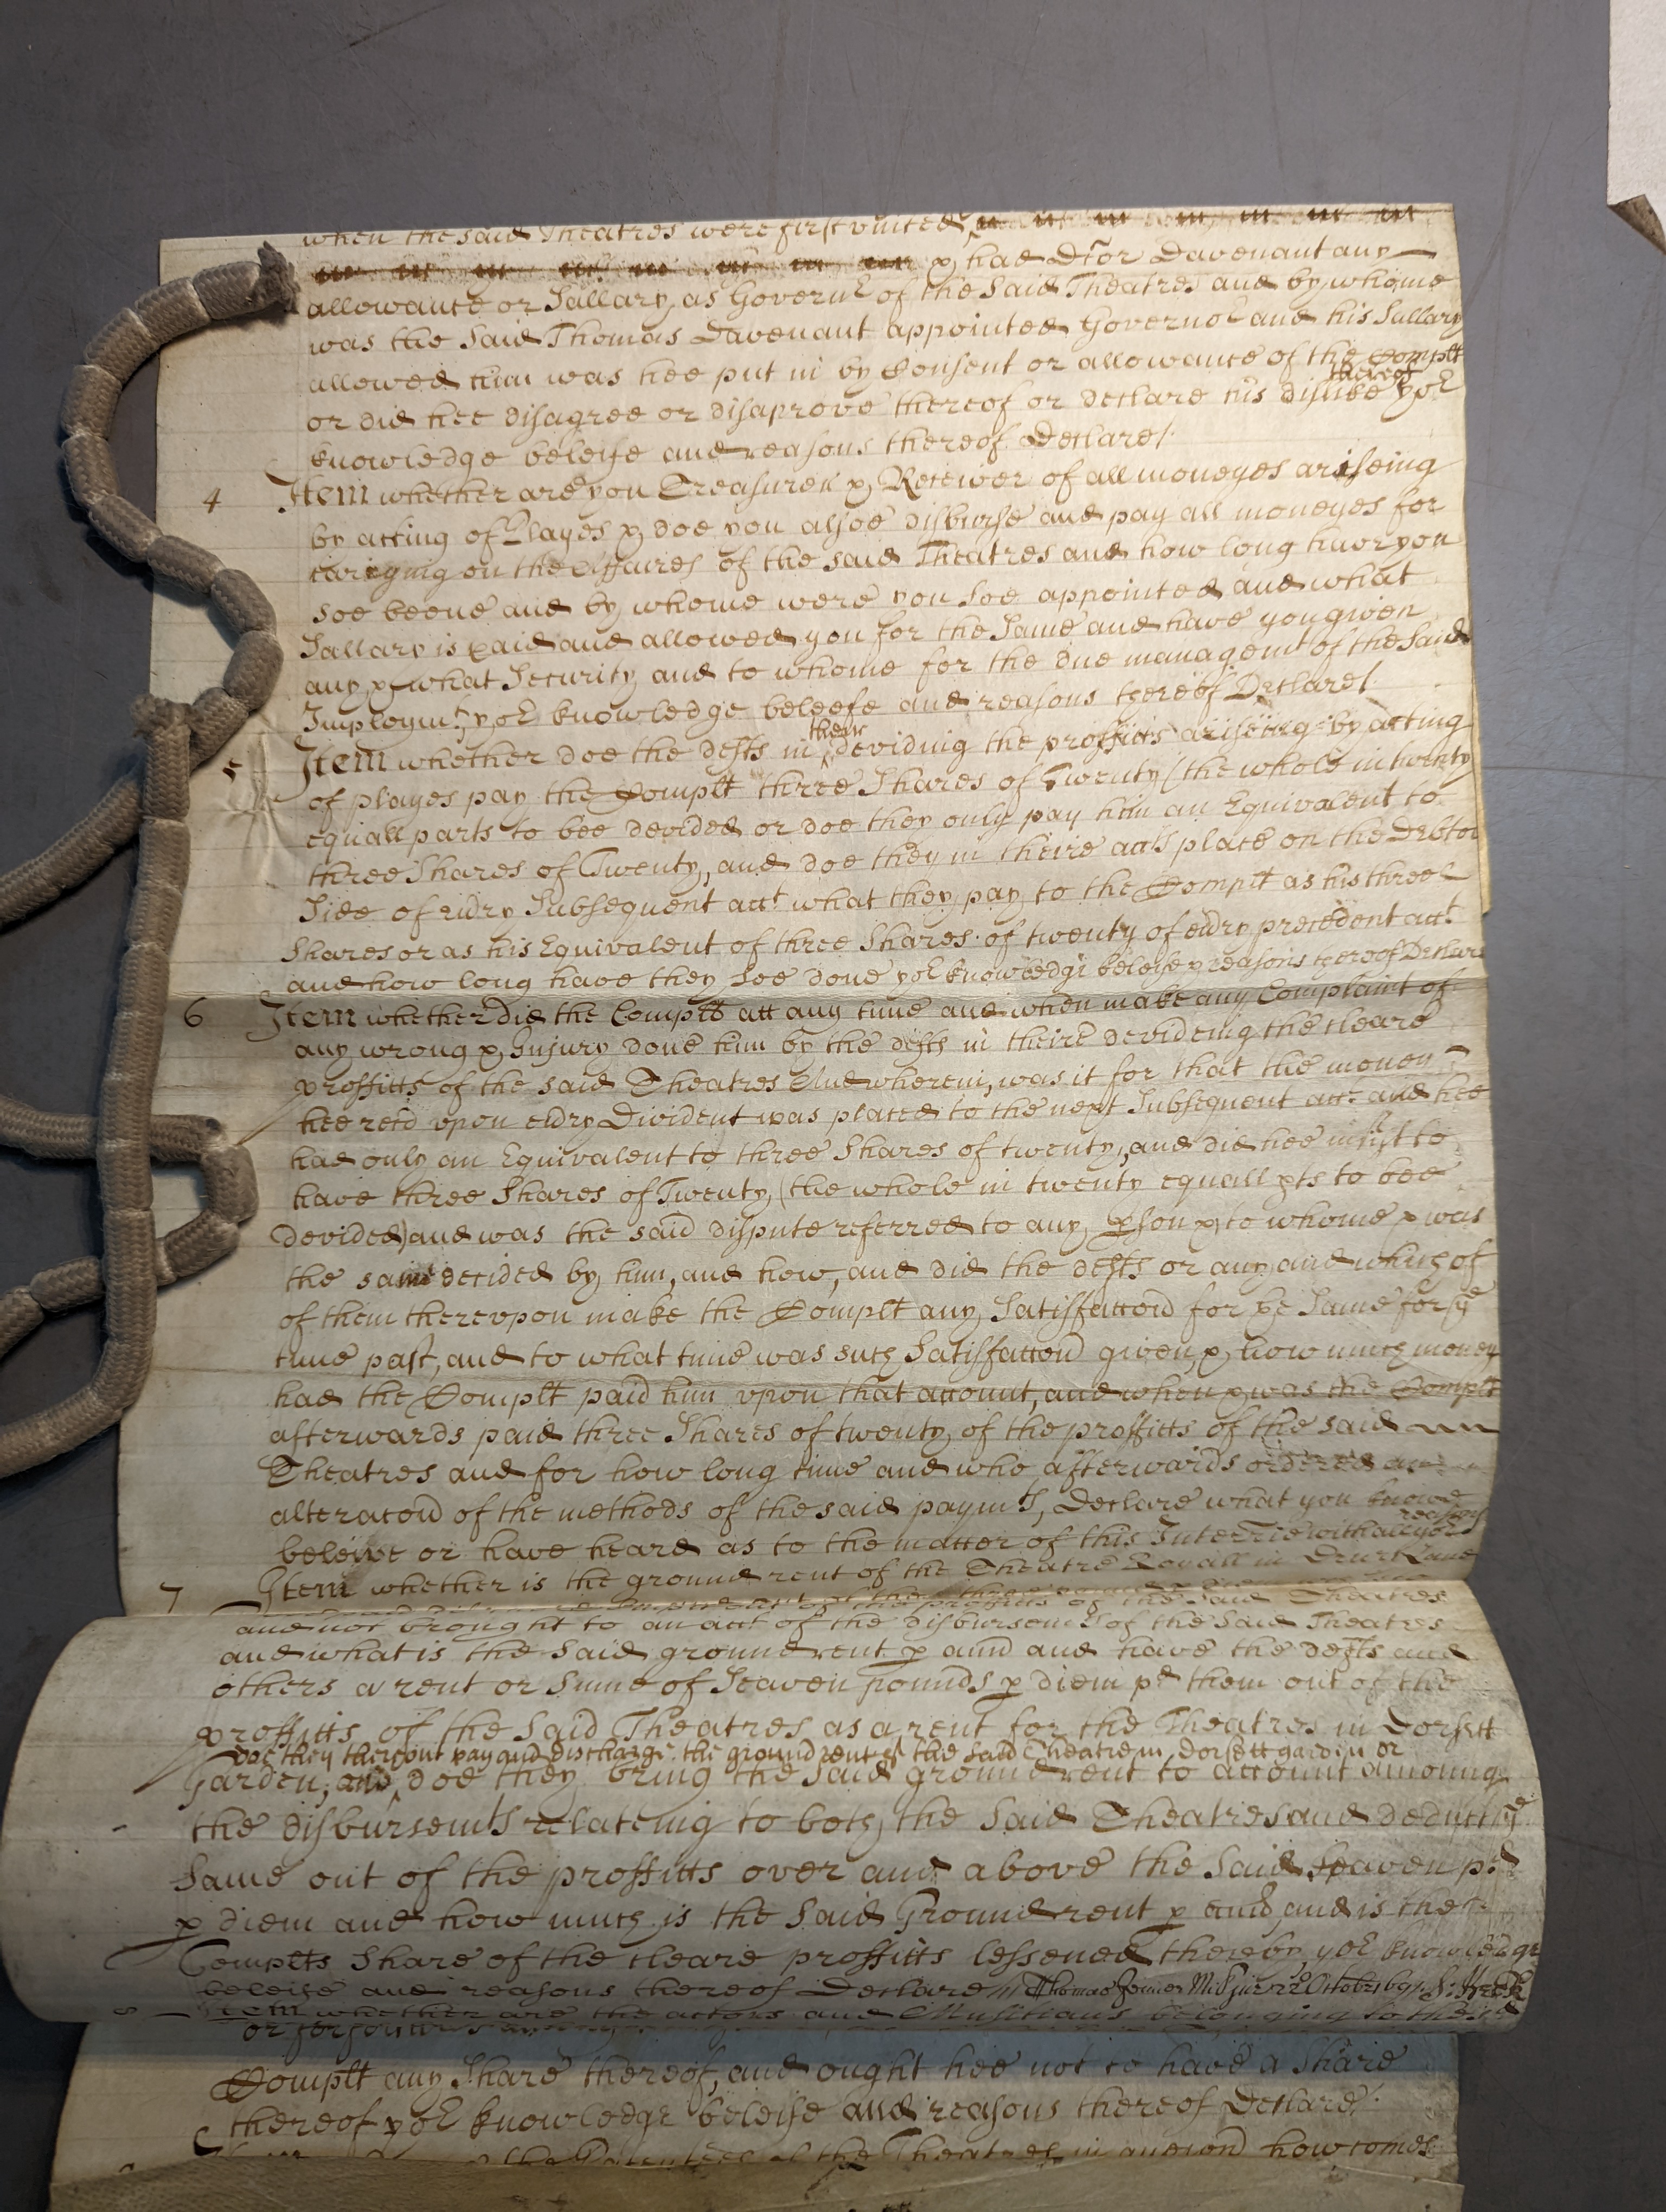 when the said Theatres were first united,
& had Dtor Davenant any
allowance or Sallary as Governr of the Said Theatres and by whome
was the Said Thomas Davenant appointed Governor and his Sallary
allowed him was hee put in by Consent or allowance of the Complt
or did hee disagree or disaprove thereof or declare his dislike thereof yor
knowledge beleife and reasons thereof Declare/
4 Item whether are you Treasurer & Receiver of all moneyes ariseing
by acting of Playes & doe you alsoe disburse and pay all moneyes for
carrying on the affaires of the said Theatres and how long have you
soe beene and by whome were you soe appointed and what
Sallary is paid and allowed you for the Same and have you given
any & what Security and to whome for the due managemt of the Said
Imploymt, yor knowledge beleefe and reasons thereof Declare/
5 Item whether doe the defts in their devidnig the proffitts ariseing by acting
of playes pay the Complt three Shares of Twenty (the whole in twenty
equall parts to bee devided or doe they only pay him an Equivalent to
three Shares of Twenty, and doe they in theire accts place on the Debtor
Side of every Subsequent acct what they pay to the Complt as his three
Shares or as his Equivalent of three Shares of twenty of every precedent acct
and how long have they soe done yor knowledge beleife & reasons thereof Declare
6 Item whether did the Complt att any time and when make any Complaint of
any wrong & Injury done him by the defts in theire devideing the cleare
proffitts of the said Theatres And wherein, was it for that the money
hee recd upon every Divident was placed to the next Subsequent acct and hee
had only an Equivalent to three Shares of twenty, and did hee insist to
have three Shares of Twenty, (the whole in twenty equall pts to bee
devided) and was the said dispute referred to any pson & to whome & was
the same decided by him, and how, and did the defts or any and which of
of them thereupon make the Complt any Satisfaccon for ye Same for ye
time past, and to what time was such Satisfaccon given, & how much money
had the Complt paid him upon that account, and when & was the Complt
afterwards paid three Shares of twenty of the proffitts of the said
Theatres and for how long time and who afterwards ordered an
alteracon of the methods of the said paymts, Declare what you knowe
beleive or have heard as to the matter of this Interrie with all yor reasons
7 Item whether is the ground rent of the Theatre Royall in Drury Lane
and not brought to an acct of the disbursemts of the Said Theatres
and what is the Said ground rent p ann and have the defts and
others a rent or Sume of Seaven pounds p diem pd them out of the
proffitts of the Said Theatres as a rent for the Theatres in Dorsett
doe they thereout pay and discharge the ground rent of the said Theatre in Dorsett garden or
Garden, and doe they bring the Said ground rent to account amoung
the disbursemts relateing to both the Said Theatres and deduct ye
Same out of the proffitts over and above the Said Seaven pd
p diem and how much is the Said Ground rent p ann, and is the
Complts Share of the cleare proffitts lessened thereby, yor knowledge
beleife and reasons thereof Declare //
8 Item whether are the actors and Musitians belonging to the
Complt any Share thereof, and ought hee not to have a Share
thereof yor knowledge beleife and reasons thereof Declare/
of the Theatres in how comes